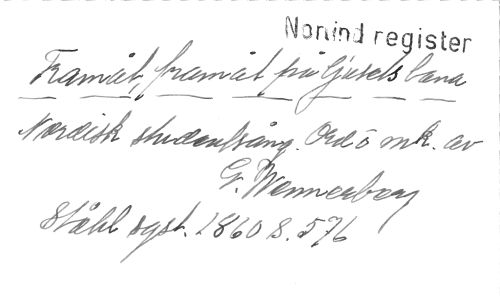 Nonind register
Framåt, framåt på ljusets bana
Nordisk studentsång. Ord o mk. av
G. Wennerberg
Ståhl syst. 1860 s. 576